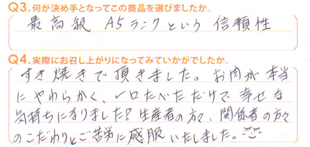 Q3.何が決め手となってこの商品を選びましたか。
最高級 A5ランクという信頼性
Q4.実際にお召し上がりになってみていかがでしたか。
すき焼きで頂きました。お肉が本当
にやわらかく、一口たべただけで幸せな
気持ちになりました!生産者の方々、関係者の方々
のこだわりとご苦労に感服いたしました。